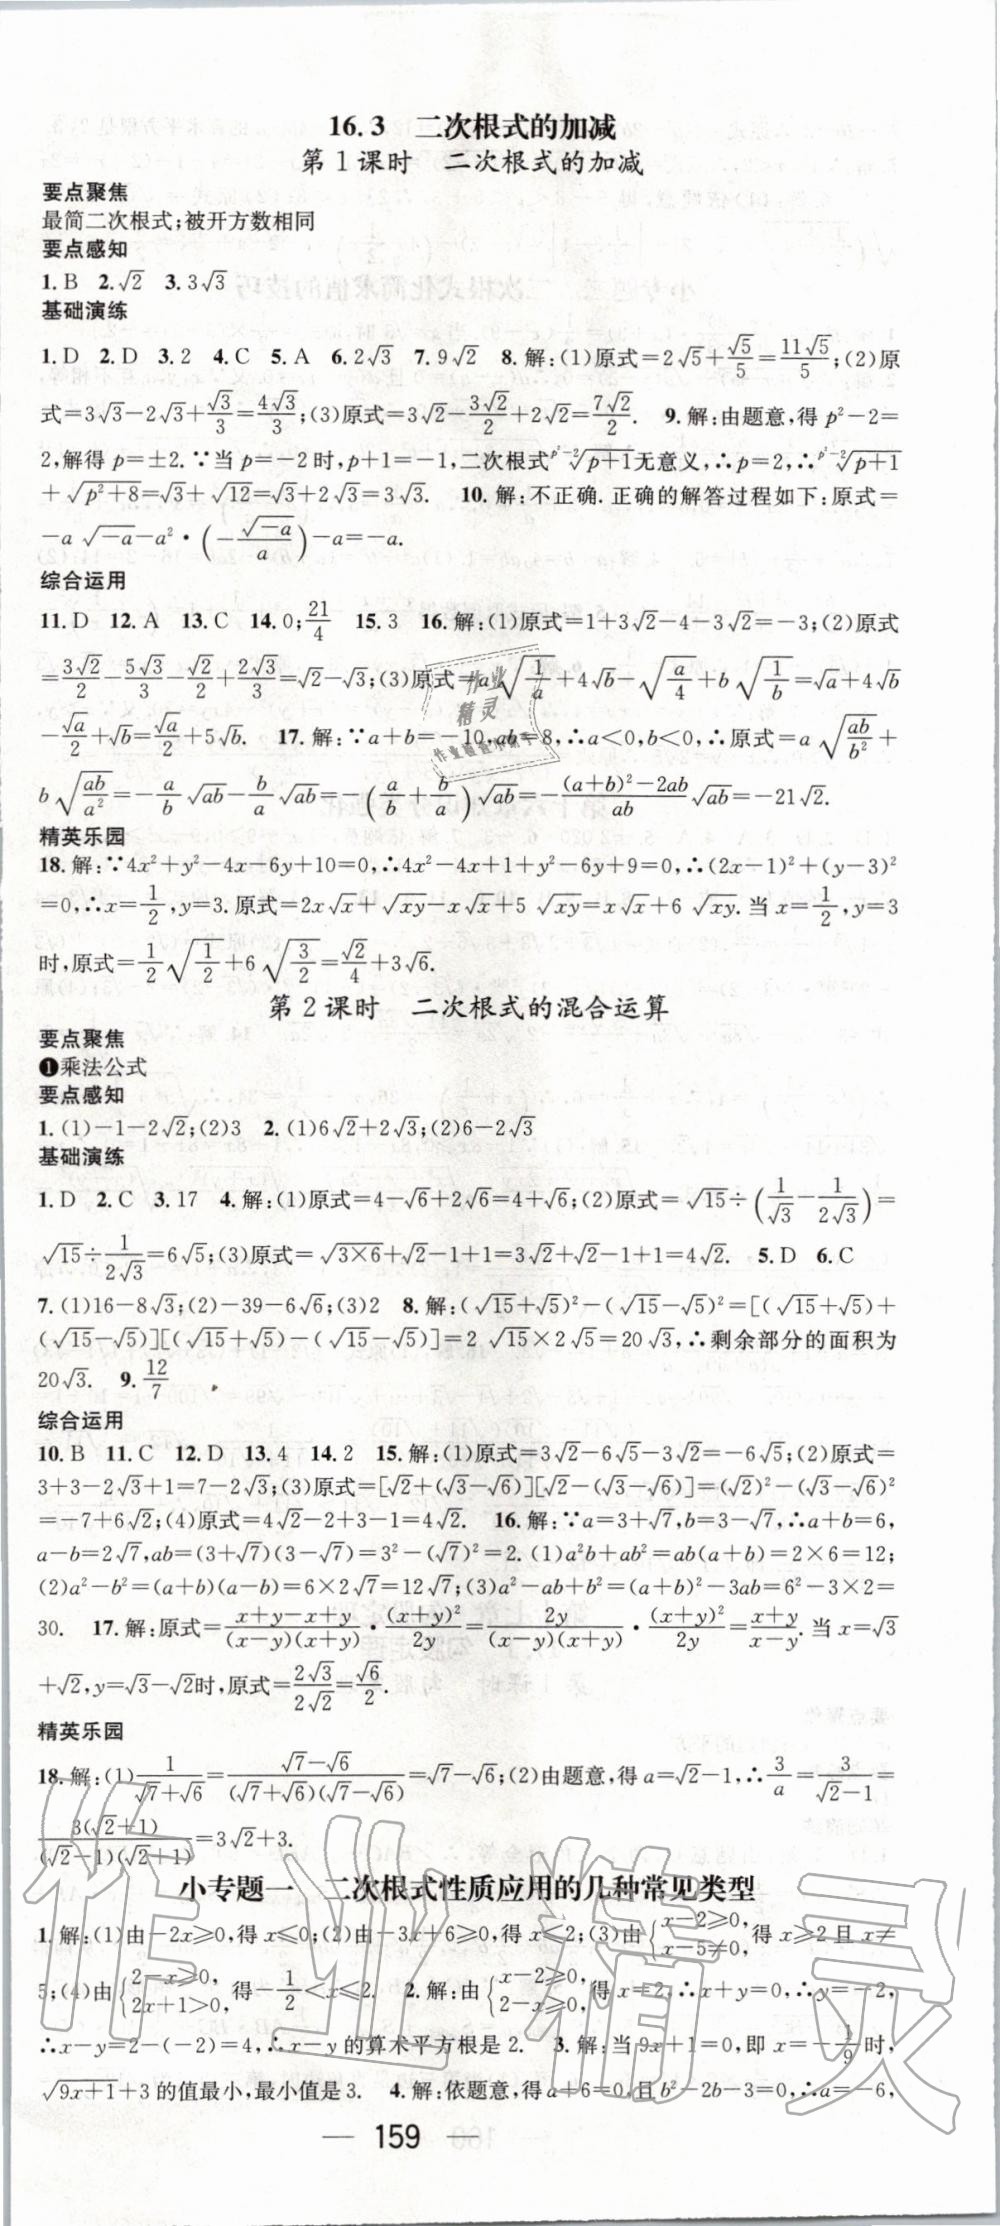 16.3 二次根式的加减
第1课时 二次根式的加减
要点聚焦
最简二次根式;被开方数相同
要点感知
1.B 2.√2 3.3√3
基础演练
1.D 2.D 3.2 4.C 5.A 6.2√3 7.9√2 8.解:(1)原式=2√5+√5/5=11√5/5;(2)原
式=3√3-2√3+√3/3=4√3/3;(3)原式=3√2-3√2/2+2√2=7√2/2. 9.解:由题意,得 p²-2=
2,解得 p=±2.∵当 p=-2时,p+1=-1,二次根式 ᵖ²⁻²√(p+1)无意义,∴p=2,∴ᵖ²⁻²√(p+1)
+√(p²+8)=√3+√12=√3+2√3=3√3. 10.解:不正确.正确的解答过程如下:原式=
-a√(-a)-a²·(-√(-a)/a)-a=-a.
综合运用
11.D 12.A 13.C 14.0;21/4 15.3 16.解:(1)原式=1+3√2-4-3√2=-3;(2)原式
=3√2/2-5√3/3-√2/2+2√3/3=√2-√3;(3)原式=a√(1/a)+4√b-√(a/4)+b√(1/b)=√a+4√b
-√a/2+√b=√a/2+5√b. 17.解:∵a+b=-10,ab=8,∴a<0,b<0,∴原式=a√(ab/b²)+
b√(ab/a²)=-a/b√ab-b/a√ab=-(a/b+b/a)√ab=-((a+b)²-2ab)/ab √ab=-21√2.
精英乐园
18.解:∵4x²+y²-4x-6y+10=0,∴4x²-4x+1+y²-6y+9=0,∴(2x-1)²+(y-3)²
=0,∴x=1/2,y=3.原式=2x√x+√xy-x√x+5√xy=x√x+6√xy.当 x=1/2,y=3
时,原式=1/2√(1/2)+6√(3/2)=√2/4+3√6.
第2课时 二次根式的混合运算
要点聚焦
❶乘法公式
要点感知
1.(1)-1-2√2;(2)3 2.(1)6√2+2√3;(2)6-2√3
基础演练
1.D 2.C 3.17 4.解:(1)原式=4-√6+2√6=4+√6;(2)原式=√15÷(1/√3-1/(2√3))=
√15÷1/(2√3)=6√5;(3)原式=√(3×6)+√2-1+1=3√2+√2-1+1=4√2. 5.D 6.C
7.(1)16-8√3;(2)-39-6√6;(3)2 8.解:(√15+√5)²-(√15-√5)²=[(√15+√5)+
(√15-√5)][(√15+√5)-(√15-√5)]=2√15×2√5=20√3,∴剩余部分的面积为
20√3. 9.12/7
综合运用
10.B 11.C 12.D 13.4 14.2 15.解:(1)原式=3√2-6√5-3√2=-6√5;(2)原式=
3+3-2√3+1=7-2√3;(3)原式=[√2+(√3-√6)][√2-(√3-√6)]=(√2)²-(√3-√6)²
=-7+6√2;(4)原式=4√2-2+3-1=4√2. 16.解:∵a=3+√7,b=3-√7,∴a+b=6,
a-b=2√7,ab=(3+√7)(3-√7)=3²-(√7)²=2.(1)a²b+ab²=ab(a+b)=2×6=12;
(2)a²-b²=(a+b)(a-b)=6×2√7=12√7;(3)a²-ab+b²=(a+b)²-3ab=6²-3×2=
30. 17.解:原式=(x+y-x+y)/((x-y)(x+y))·(x+y)²/2y=2y/((x-y)(x+y))·(x+y)²/2y=(x+y)/(x-y).当 x=√3
+√2,y=√3-√2时,原式=2√3/2√2=√6/2.
精英乐园
18.解:(1)1/(√7+√6)=(√7-√6)/((√7+√6)(√7-√6))=√7-√6;(2)由题意,得 a=√2-1,∴3/a=3/(√2-1)=
3(√2+1)/((√2-1)(√2+1))=3√2+3.
小专题一 二次根式性质应用的几种常见类型
1.解:(1)由-2x≥0,得 x≤0;(2)由-3x+6≥0,得 x≤2;(3)由{x-2≥0, x-5≠0,得 x≥2且 x≠
5;(4)由{2-x≥0, 2x+1>0,得-1/2<x≤2. 2.解:由{x-2≥0, 2-x≥0,得 x=2,∴x+y=0,∴y=-2,
∴x-y=2-(-2)=4,∴x-y的算术平方根是2. 3.解:当9x+1=0,即 x=-1/9时,
√(9x+1)+3的值最小,最小值是3. 4.解:依题意,得 a+6=0,且 b²-2b-3=0,∴a=-6,
— 159 —
作业精灵